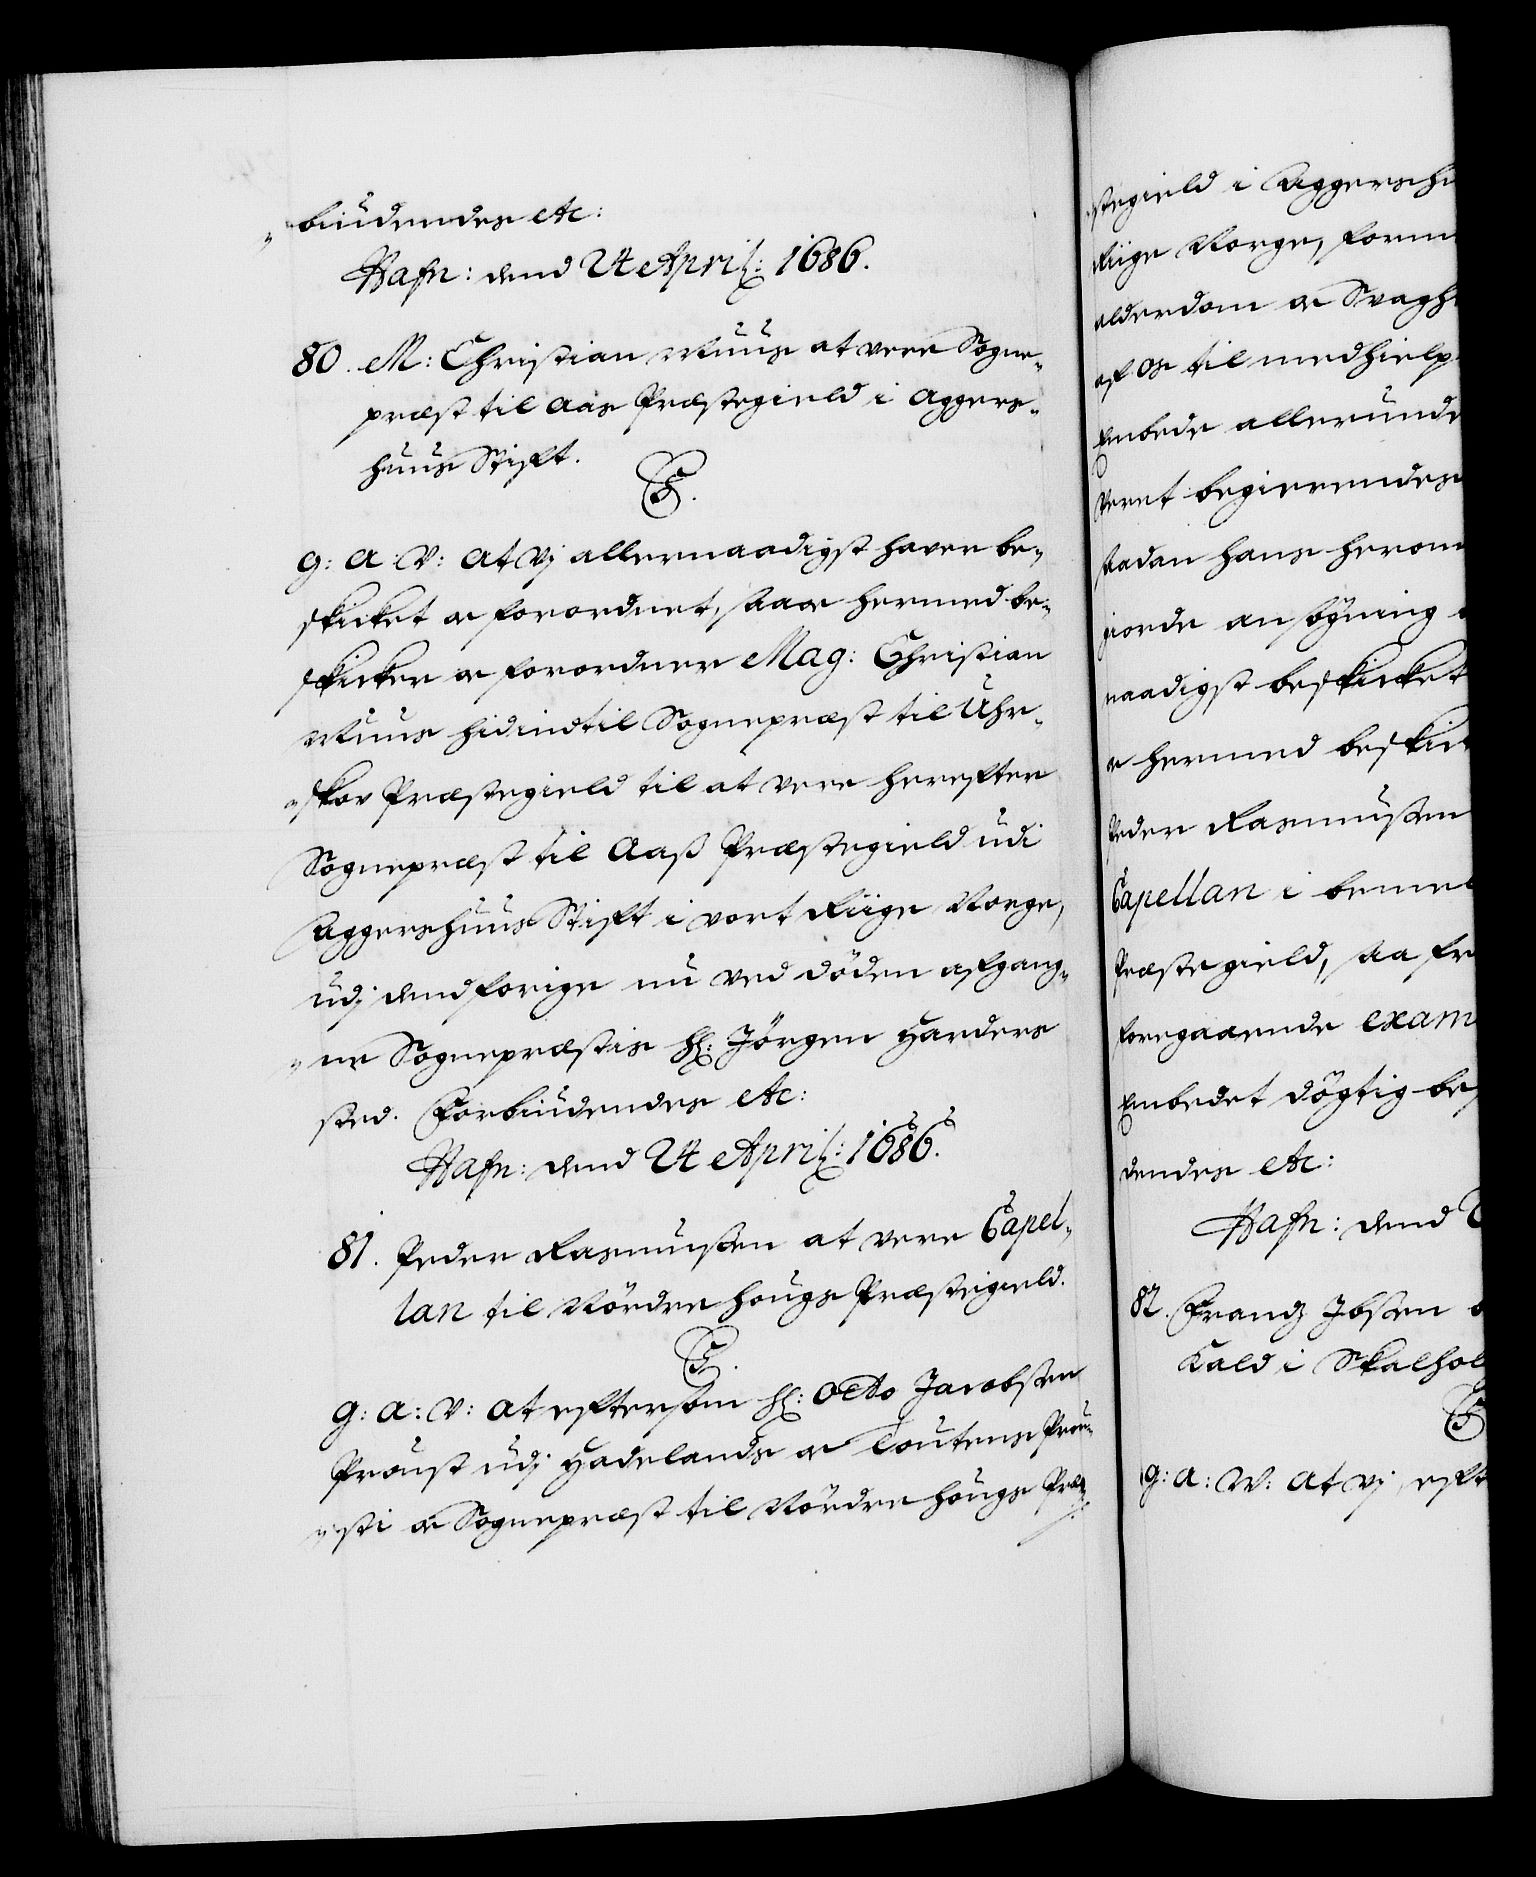 biudendes etc:
Hafn: dend 24 April: 1686.
80. M: Christian Muus at vere Sogne-
præst til Aas Præstegield i Aggers-
huus Stift.
C5.
G: A: V: At Vj allernaadigst haver be-
skicket oc forordnet, saa oc hermed be-
skicker oc forordner Mag: Christian
Muus hidindtil Sognepræst til Uhr-
skov Præstegield til at vere herefter
Sognepræst til Aass Præstegield udi
Aggershuus Stift i vort Riige Norge,
udj dend forige nu ved döden afgang-
ne Sognepræstis H: Jörgen Harders
sted. Forbiudendes etc:
Hafn: dend 24 April: 1686.
81. Peder Rasmussen at vere Capel-
lan til Nördrehougs Præstegield.
C5.
G: A: V: At eftersom H: Otto Jacobsen
Proust udj Hadelands oc Toutens Prou-
sti oc Sognepræst til Nördrehougs Præ-
stegield i Aggershu
Riige Norge, form
alderdom oc Svagh
af os til medhielp
Embede allerunde
veret begierendes
saadan hans herom
giorde ansögning
naadigst beskicket
oc hermed beskic
Peder Rasmussen
Capellan i bemel
Præstegield, saa fr
foregaaende exam
Embedet dögtig be
dendes etc:
Hafn: dend 2
82. Frandz Ibsen
Kald i Skalhol
C5
G: A: V: At Vj, eft